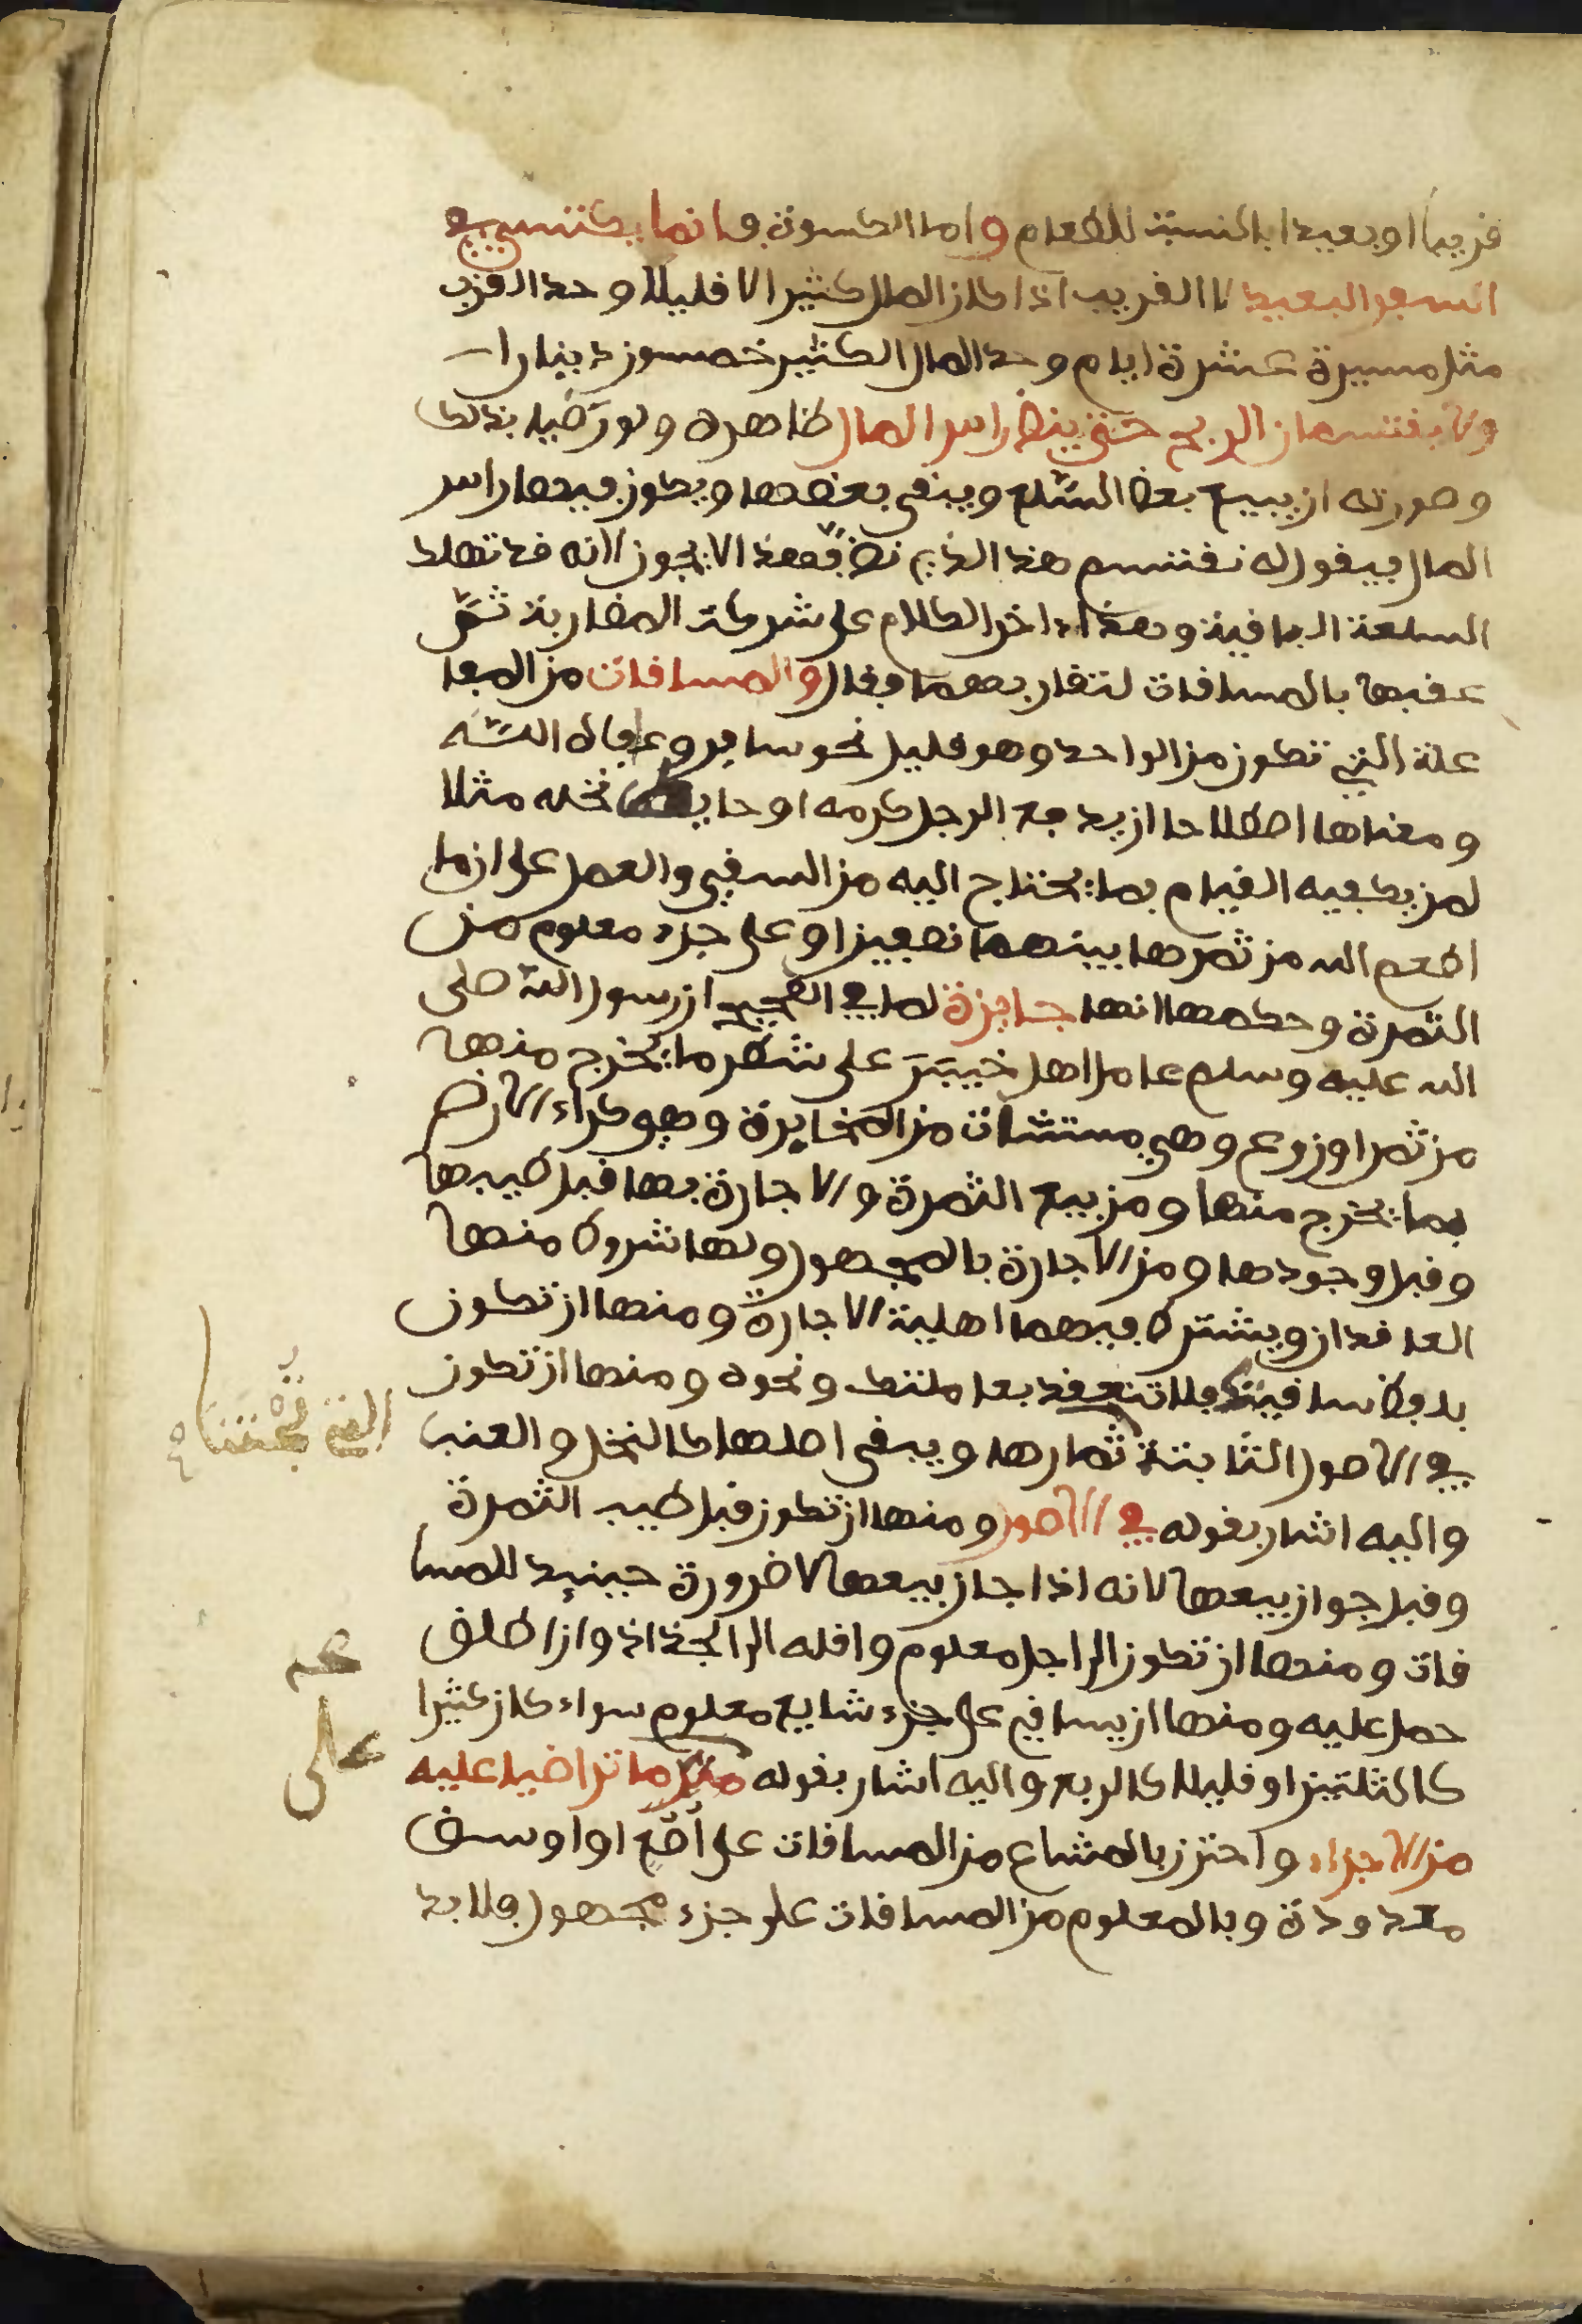 قريبا او بعيدا بالنسبة للطعام واما الكسوة فانما يكتسي في
السفر البعيد لا القريب اذا كان المال كثيرا لا قليلا وحد القرب
مثل مسيرة عشرة ايام وحد المال الكثير خمسون دينارا
ولا يقتسمان الربح حتى ينض راس المال ظاهره ولو رضيا بذلك
وصورته ان يبيع بعض السلع ويبقى بعضها ويكون فيها راس
المال فيقول له نقتسم هذا الذي نض فهذا لا يجوز لانه قد تهلك
السلعة الباقية وهذا اخر الكلام على شركة المضاربة ثم
عقبها بالمساقات لتقاربهما فقال والمساقات من المفا
علة التي تكون من الواحد وهو قليل نحو سافر وعافاه الله
ومعناها اصطلاحا ان يدفع الرجل كرمه او حايط نخله مثلا
لمن يكفيه القيام بما يحتاج اليه من السقي والعمل على ان ما
اطعم الله من ثمرها بينهما نصفين او على جزء معلوم من
الثمرة وحكمها انها جايزة لما في الصحيح ان رسول الله صلى
الله عليه وسلم عامل اهل خيبر على شطر ما يخرج منها
من ثمر او زرع وهي مستثنات من المخابرة وهو كراء الارض
بما يخرج منها ومن بيع الثمرة والاجارة بها قبل طيبها
وقبل وجودها ومن الاجارة بالمجهول ولها شروط منها
العاقدان ويشترط فيهما اهلية الاجارة ومنها ان تكون
بلفظ ساقيتك فلا تنعقد بعاملتك ونحوه ومنها ان تكون
في الاصول الثابتة ثمارها ويبقى اصلها كالنخل والعنب
واليه اشار بقوله في الاصول ومنها ان تكون قبل طيب الثمرة
وقبل جواز بيعها لانه اذا جاز بيعها لا ضرورة حينيد للمسا
قات ومنها ان تكون الى اجل معلوم واقله الى الجذاذ وان اطلق
حمل عليه ومنها ان يساقي على جزء شايع معلوم سواء كان كثيرا
كالثلثين او قليلا كالربع واليه اشار بقوله على ما تراضيا عليه
من الاجزاء واحترز بالمشاع من المساقات على اصع او اوسق
معدودة وبالمعلوم من المساقات على جزء مجهول فلا بد
التي تجتنا
عم
على